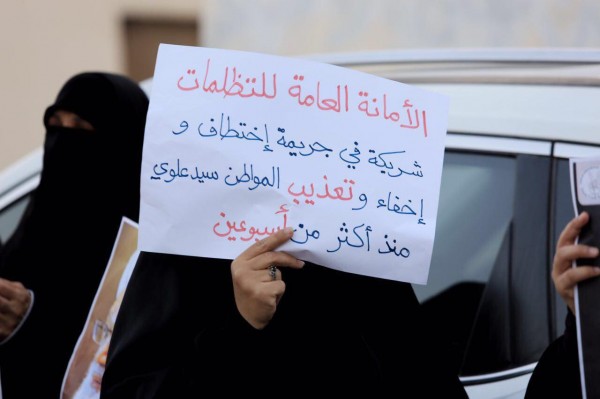 الأمانة العامة للتظلمات
شريكة في جريمة إختطاف و
إخفاء و تعذيب المواطن سيدعلوي
منذ أكثر من أسبوعين